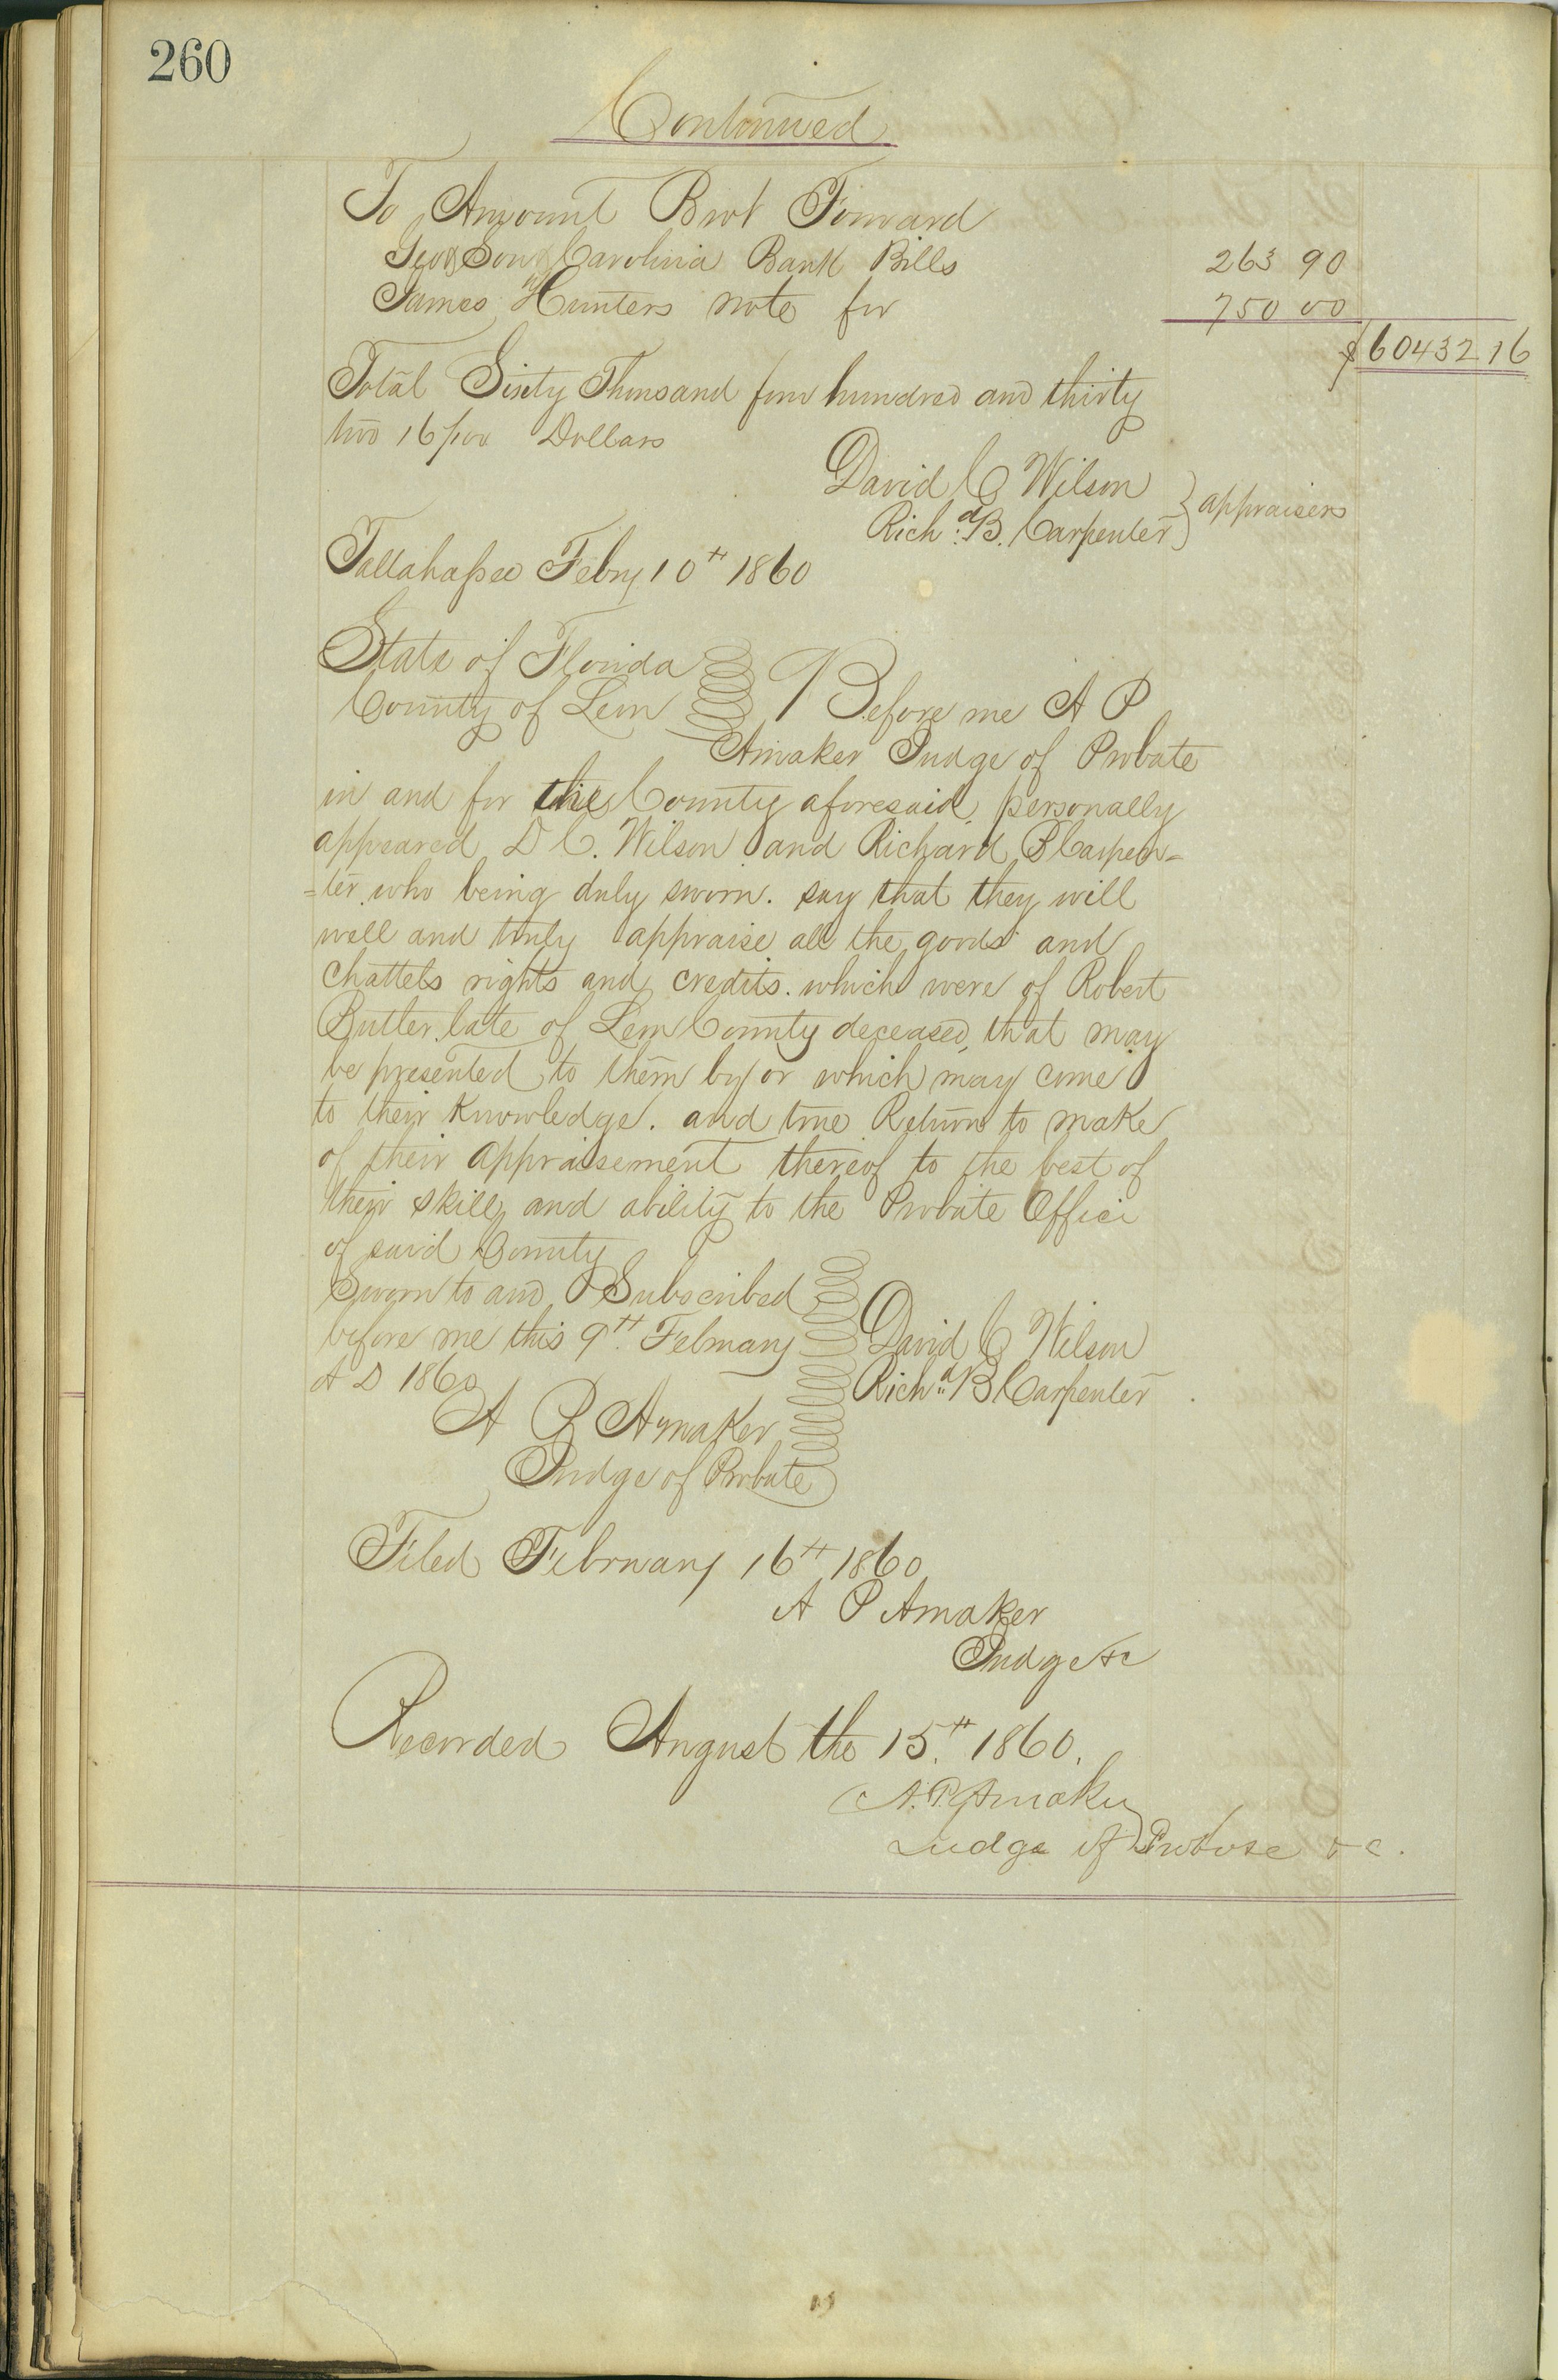 260
Continued
To Amount Brot Forward
Geo & Sou Carolina Bank Bills 263 90
James Hunters note for 750 00
$60432 16
Total Sixty Thousand four hundred and thirty
two 16/100 Dollars
David C Wilson
Richd. B. Carpenter } appraisers
Tallahassee Febry 10th 1860
State of Florida
County of Leon Before me A P
Amaker Judge of Probate
in and for the County aforesaid, personally
appeared D C. Wilson and Richard B Carpen=
=ter who being duly sworn. say that they will
well and truly appraise all the goods and
chattels rights and credits. which were of Robert
Butler late of Leon County deceased, that may
be presented to them by or which may come
to their knowledge. and true Return to make
of their appraisement thereof to the best of
their skill and ability to the Probate Office
of said County
Sworn to and Subscribed
before me this 9th February
A D 1860
David C Wilson
Richd. B Carpenter
A P Amaker
Judge of Probate
Filed February 16th 1860
A P Amaker
Judge &c
Recorded August the 15th. 1860.
A. P. Amaker
Judge of Probate &c.